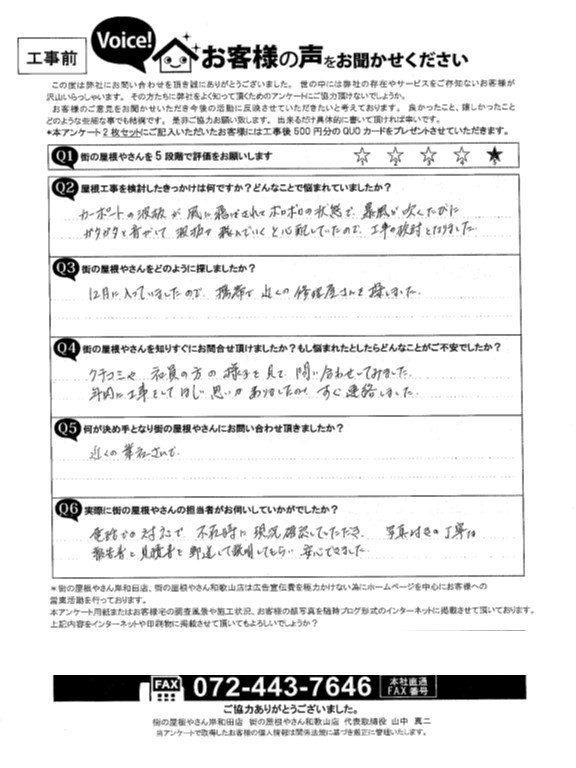 工事前
Voice!
お客様の声をお聞かせください
この度は弊社にお問い合わせを頂き誠にありがとうございました。世の中には弊社の存在やサービスをご存知ないお客様が
沢山いらっしゃいます。その方たちに弊社をよく知って頂くためのアンケートにご協力頂けないでしょうか。
お客様のご意見をお聞かせいただき今後の活動に反映させていただきたいと考えております。良かったこと、嬉しかったこと
どのような些細な事でも結構です。是非ご協力お願い致します。出来るだけ具体的に書いて頂ければ幸いです。
*本アンケート2枚セットにご記入いただいたお客様には工事後500円分のQUOカードをプレゼントさせていただきます。
Q1 街の屋根やさんを5段階で評価をお願いします
1 2 3 4 5
Q2 屋根工事を検討したきっかけは何ですか?どんなことで悩まれていましたか?
カーポートの波板が風に飛ばされてボロボロの状態で、暴風が吹くたびに
ガタガタと音がして波板が飛んでいくと心配していたので、工事の検討となりました
Q3 街の屋根やさんをどのように探しましたか?
12月に入っていましたので、携帯で近くの修理屋さんを探しました。
Q4 街の屋根やさんを知りすぐにお問合せ頂けましたか?もし悩まれたとしたらどんなことがご不安でしたか?
クチコミや社員の方の様子を見て問い合わせしてみました。
年内に工事をしてほしい思いがありましたのですぐ連絡しました。
Q5 何が決め手となり街の屋根やさんにお問い合わせ頂きましたか?
近くの業社さんで
Q6 実際に街の屋根やさんの担当者がお伺いしていかがでしたか?
電話での対応で、不在時に現況確認していただき、写真付きの丁寧な
報告書と見積書を郵送して説明してもらい安心できました。
*街の屋根やさん岸和田店、街の屋根やさん和歌山店は広告宣伝費を極力かけない為にホームページを中心にお客様への
営業活動を行っております。
本アンケート用紙またはお客様宅の調査風景や施工状況、お客様の顔写真を随時ブログ形式のインターネットに掲載させて頂いております。
上記内容をインターネットや印刷物に掲載させて頂いてもよろしいでしょうか?
FAX 072-443-7646 本社直通
FAX番号
ご協力ありがとうございました。
街の屋根やさん岸和田店 街の屋根やさん和歌山店 代表取締役 山中 真二
※アンケートで取得したお客様の個人情報は関係法施に基づき厳正に管理いたします。